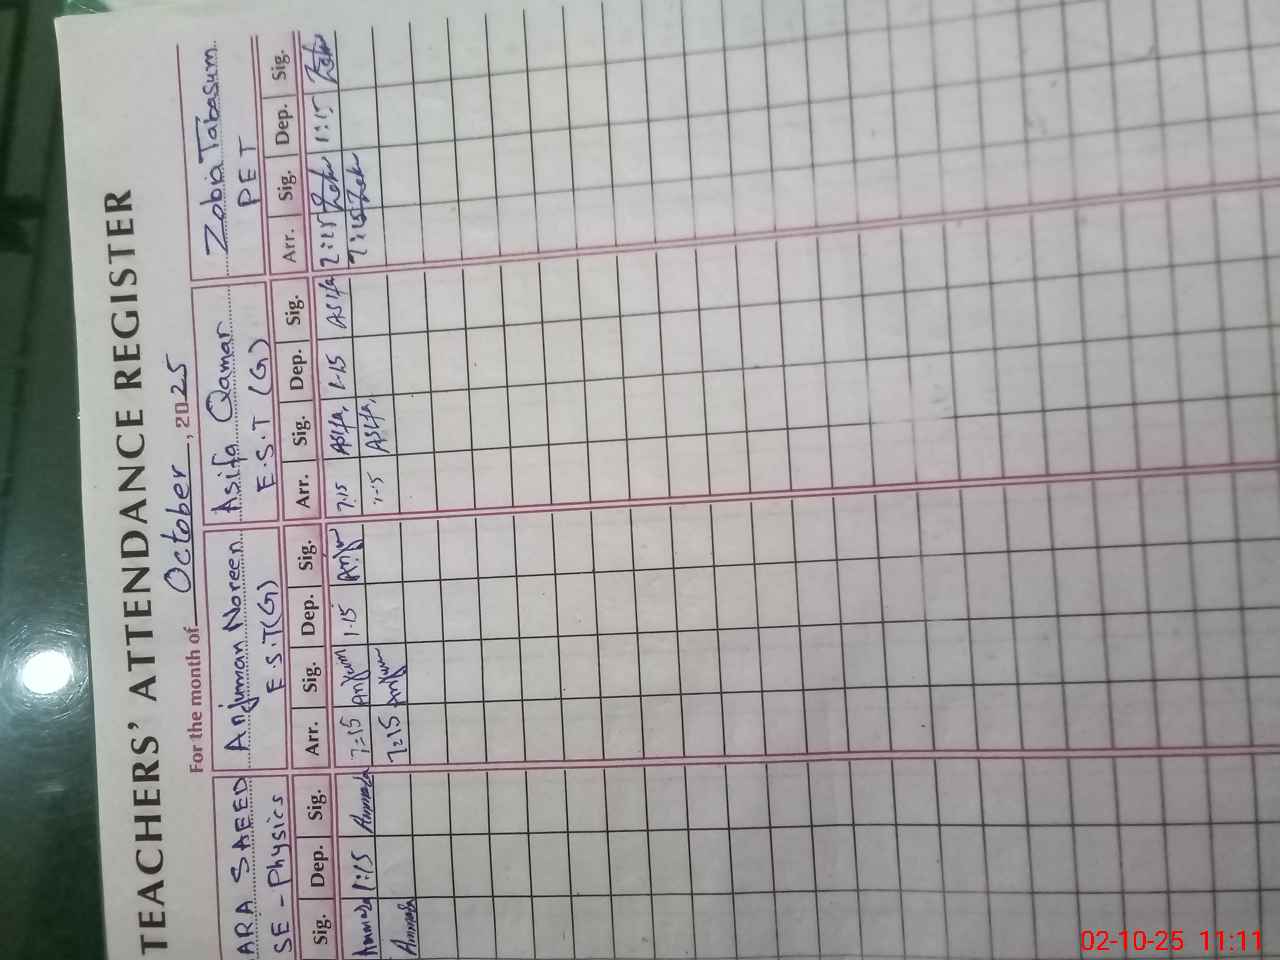 TEACHERS' ATTENDANCE REGISTER
For the month of October, 2025
ARA SAEED Anjuman Noreen Asifa Qamar Zobia Tabasum
SE - Physics E.S.T(G) E.S.T (G) PET
Sig. Dep. Sig. Arr. Sig. Dep. Sig. Arr. Sig. Dep. Sig. Arr. Sig. Dep. Sig.
1:15 7=15 Anjum 1.15 7.15 Asifa 1-15 Asifa 1:15
7=15 Anjum Asifa
02-10-25 11:11